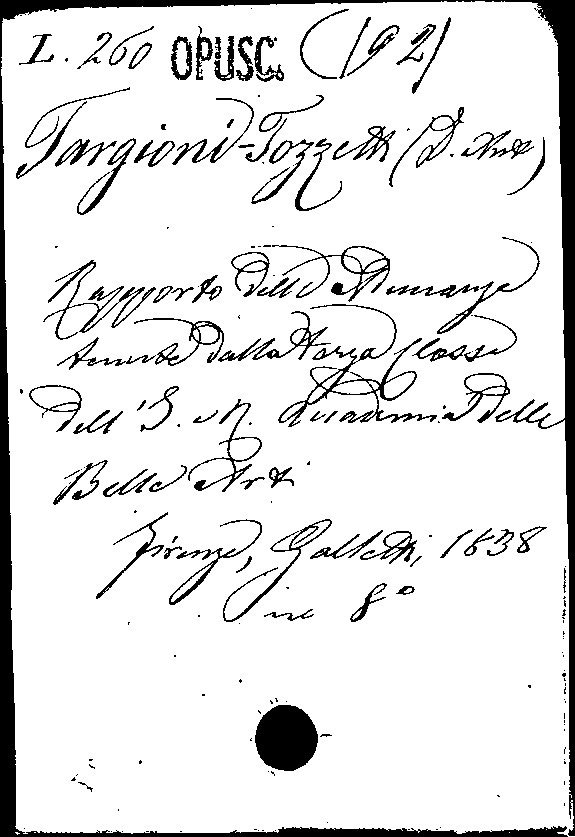 L. 260 OPUSC. (192)
Targioni-Tozzetti (D. Ant)
Rapporto delle Adunanze
tenute dalla terza Classe
dell'I. e R. Accademia delle
Belle Arti
Firenze, Galletti, 1838
in 8°